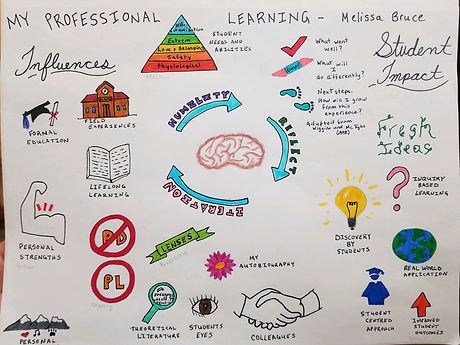 MY PROFESSIONAL LEARNING - Melissa Bruce
Influences
Esteem
Love & Belonging
Safety
Physiological
STUDENT
NEEDS AND
ABILITIES
What went
well?
What will I
do differently?
Next steps.
How will I grow
from this
experience?
Adapted from
Wiggins and McTighe
Student
Impact
FORMAL
EDUCATION
FIELD
EXPERIENCES
HUMILITY
REFLECT
ITERATION
Fresh
Ideas
LIFELONG
LEARNING
INQUIRY
BASED
LEARNING
PERSONAL
STRENGTHS
PD
PL
LENSES
MY
AUTOBIOGRAPHY
DISCOVERY
BY
STUDENTS
REAL WORLD
APPLICATION
THEORETICAL
LITERATURE
STUDENTS
EYES
COLLEAGUES
STUDENT
CENTRED
APPROACH
IMPROVED
STUDENT
OUTCOMES
PERSONAL